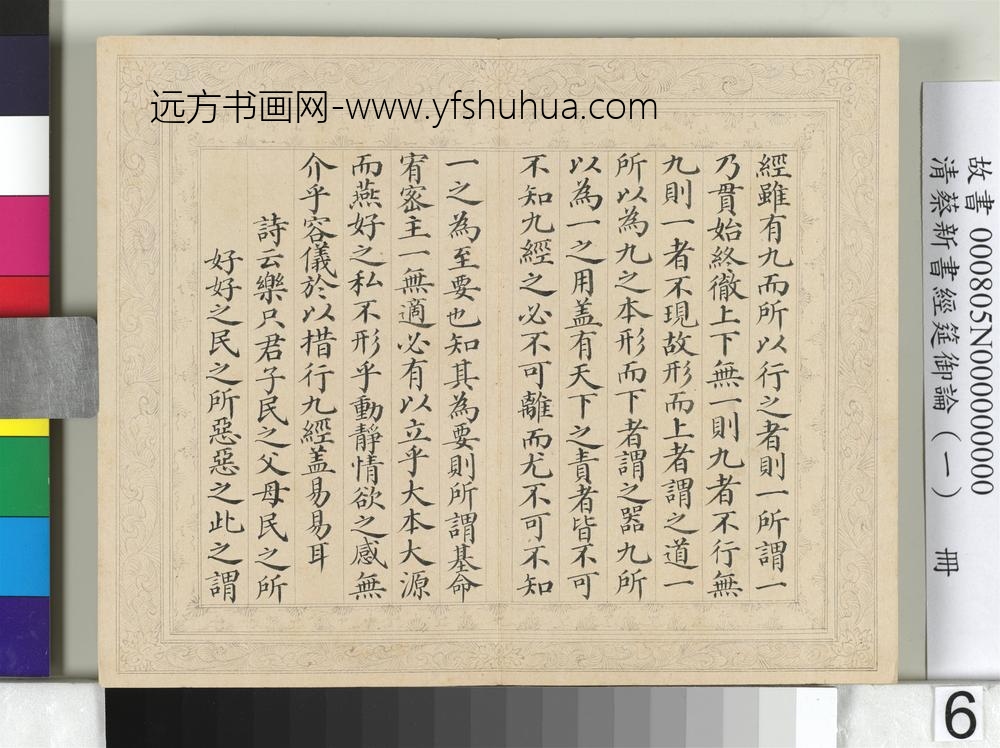 远方书画网-www.yfshuhua.com
經雖有九而所以行之者則一所謂一
乃貫始終徹上下無一則九者不行無
九則一者不現故形而上者謂之道一
所以為九之本形而下者謂之器九所
以為一之用蓋有天下之責者皆不可
不知九經之必不可離而尤不可不知
一之為至要也知其為要則所謂基命
宥密主一無適必有以立乎大本大源
而燕好之私不形乎動靜情欲之感無
介乎容儀於以措行九經蓋易易耳
詩云樂只君子民之父母民之所
好好之民之所惡惡之此之謂
故書 000805N000000000
清蔡新書經筵御論(一) 冊
6